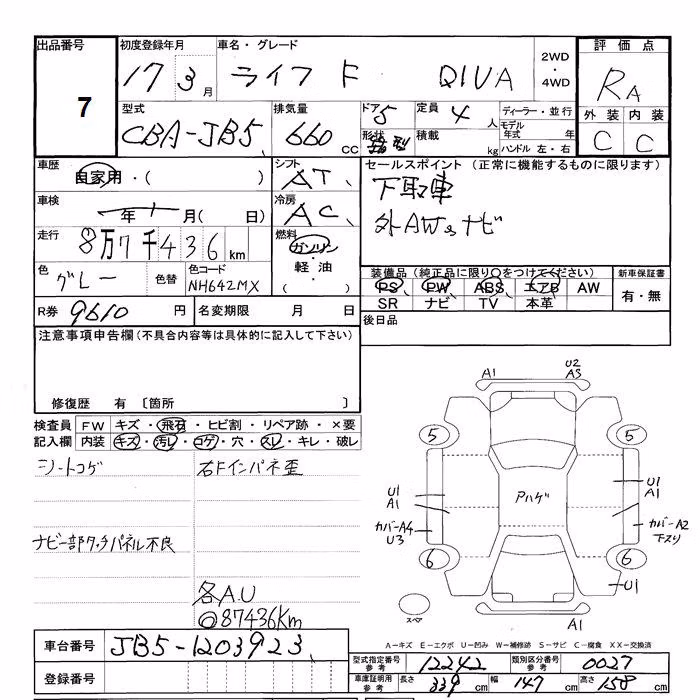 出品番号 初度登録年月 車名・グレード 2WD・4WD 評価点
7 17 3月 ライフ F DIVA RA
型式 排気量 ドア 5 定員 4人 ディーラー・並行 外装 内装
CBA-JB5 660cc 形状 箱型 積載 kg モデル年式 年 C C
ハンドル 左・右
車歴 自家用・( ) シフト AT セールスポイント(正常に機能するものに限ります)
車検 年 月( 日) 冷房 AC 下取車
走行 8万7千436km 燃料 ガソリン・軽油・( ) 外AW、ナビ
色 グレー 色替 色コード NH642MX 装備品(純正品に限り○をつけてください) 新車保証書
PS PW ABS エアB AW 有・無
SR ナビ TV 本革
R券 9610円 名変期限 月 日 後日品
注意事項申告欄(不具合内容等は具体的に記入して下さい)
修復歴 有 〔箇所 〕
検査員記入欄 FW キズ・飛石・ヒビ割・リペア跡・×要
内装 キズ・汚レ・コゲ・穴・スレ・キレ・破レ
シートコゲ 右Fインパネ歪
ナビ一部タッチパネル不良
各A.U
◎87436Km
A1 U2 A3
5 5
U1 A1 アハゲ U1 A1
カバーA4 U3 カバーA2 下スリ
6 6
U1
スペア A1
A-キズ E-エクボ U-凹み W-補修跡 S-サビ C-腐食 XX-交換済
車台番号 JB5-1203923
登録番号
型式指定番号 参考 12242 類別区分番号 参考 0027
車庫証明用 参考 長さ 339cm 幅 147cm 高さ 158cm